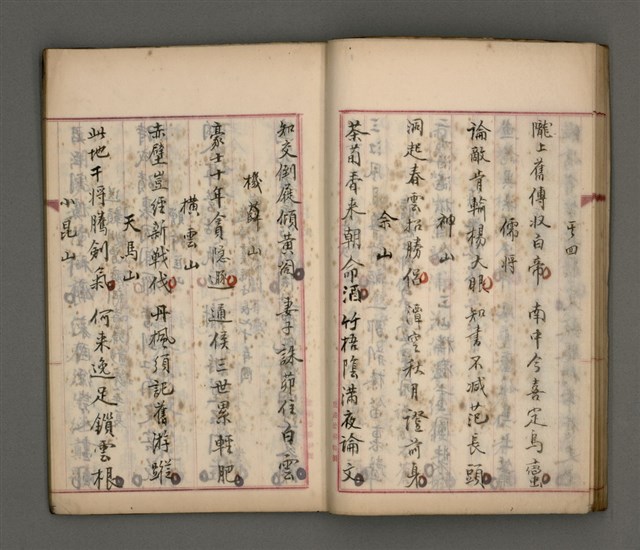 其四
隴上舊傳收白帝 南中今喜定烏蠻
儒將
論敵肯輸楊大眼 知書不減范長頭
神山
洞起春雲招勝侶 潭空秋月證前身
佘山
茶筍香來朝命酒 竹梧陰滿夜論文
知交倒屣傾黃閣 妻子誅茆住白雲
機山
豪士十年貪隱遯 通侯三世累輕肥
橫雲山
赤壁豈經新戰伐 丹楓須記舊游蹤
天馬山
此地干將騰劍氣 何來逸足鎖雲根
小崑山